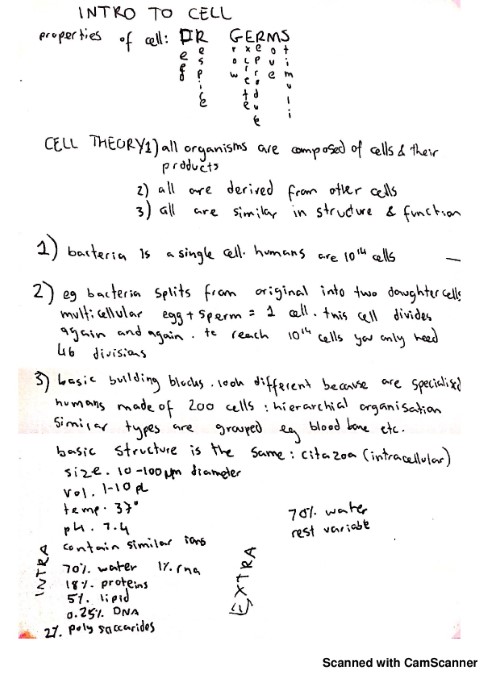 INTRO TO CELL
properties of cell: DR GERMS
CELL THEORY 1) all organisms are composed of cells & their
products
2) all are derived from other cells
3) all are similar in structure & function
1) bacteria is a single cell. humans are 10^14 cells
2) eg bacteria splits from original into two daughter cells
multicellular egg + sperm = 1 cell. this cell divides
again and again. to reach 10^14 cells you only need
46 divisions
3) basic building blocks. look different because are specialised
humans made of 200 cells : hierarchial organisation
similar types are grouped eg blood bone etc.
basic structure is the same : citazoa (intracellular)
size. 10-100μm diameter
vol. 1-10 pl
temp. 37°
ph. 7.4
contain similar ions
INTRA
70% water 1% rna
18% proteins
5% lipid
0.25% DNA
2% poly saccarides
EXTRA
70% water
rest variable
Scanned with CamScanner